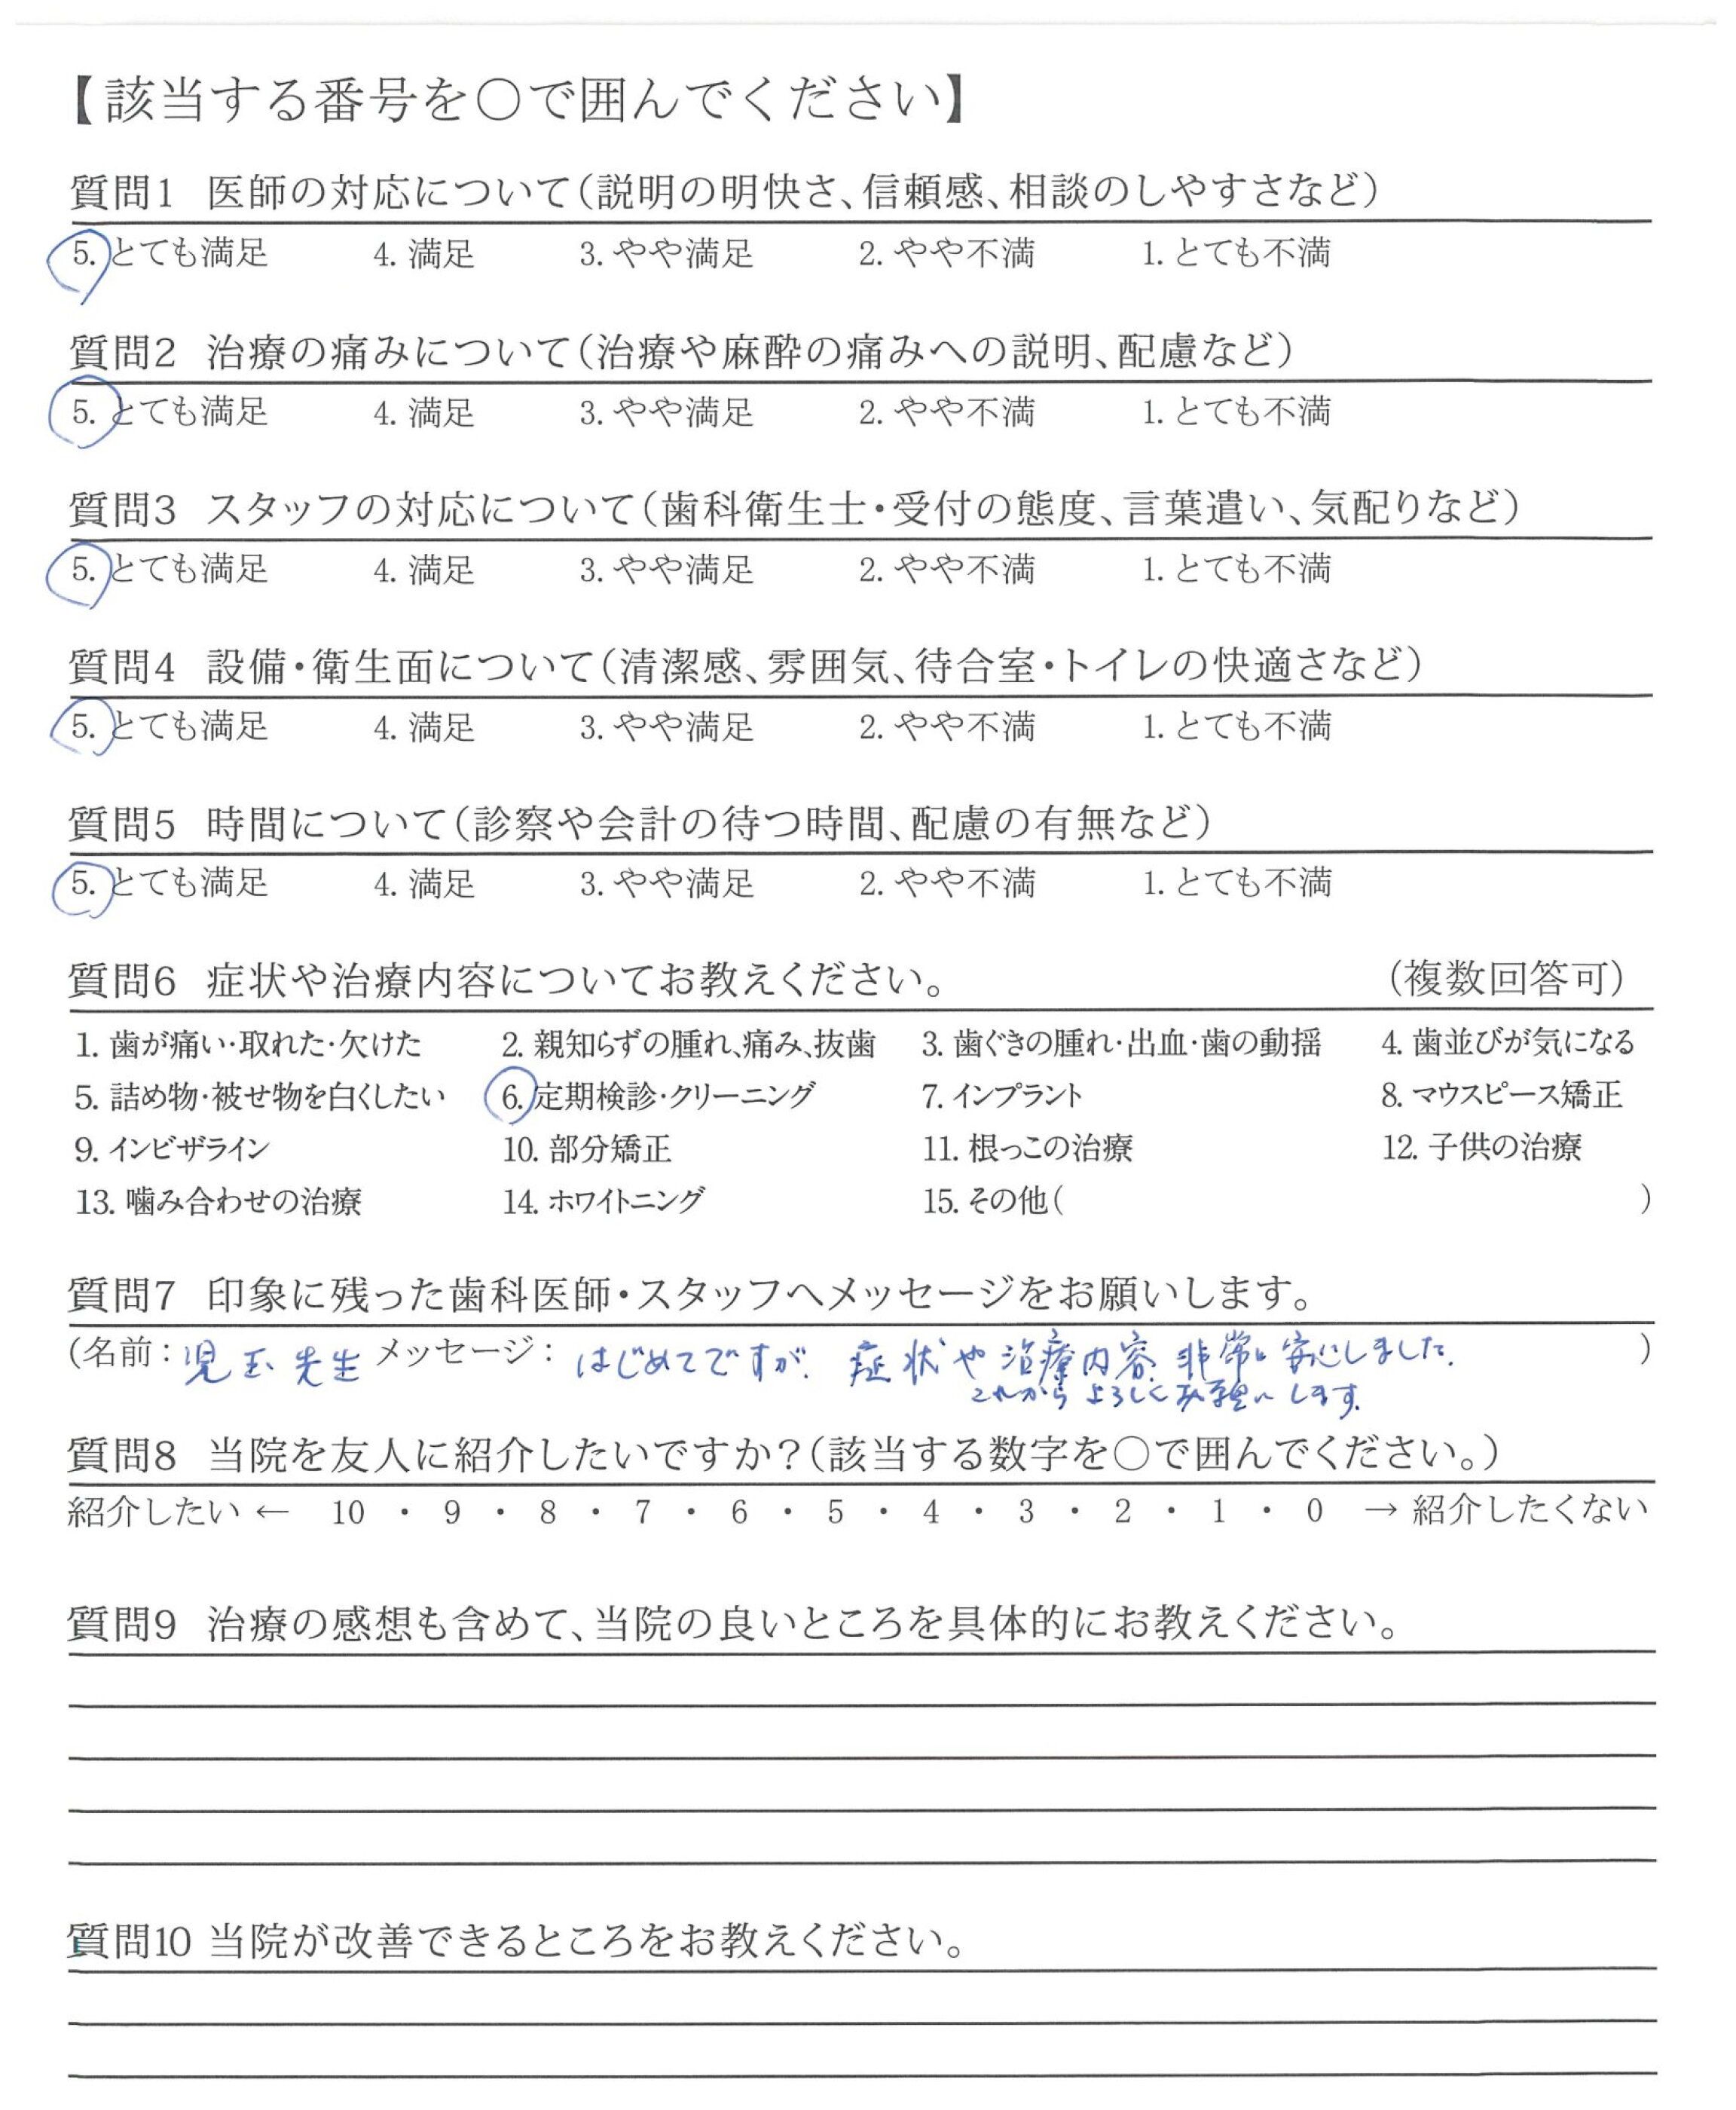 【該当する番号を○で囲んでください】
質問1 医師の対応について(説明の明快さ、信頼感、相談のしやすさなど)
5. とても満足 4. 満足 3. やや満足 2. やや不満 1. とても不満
質問2 治療の痛みについて(治療や麻酔の痛みへの説明、配慮など)
5. とても満足 4. 満足 3. やや満足 2. やや不満 1. とても不満
質問3 スタッフの対応について(歯科衛生士・受付の態度、言葉遣い、気配りなど)
5. とても満足 4. 満足 3. やや満足 2. やや不満 1. とても不満
質問4 設備・衛生面について(清潔感、雰囲気、待合室・トイレの快適さなど)
5. とても満足 4. 満足 3. やや満足 2. やや不満 1. とても不満
質問5 時間について(診察や会計の待つ時間、配慮の有無など)
5. とても満足 4. 満足 3. やや満足 2. やや不満 1. とても不満
質問6 症状や治療内容についてお教えください。 (複数回答可)
1. 歯が痛い・取れた・欠けた 2. 親知らずの腫れ、痛み、抜歯 3. 歯ぐきの腫れ・出血・歯の動揺 4. 歯並びが気になる
5. 詰め物・被せ物を白くしたい 6. 定期検診・クリーニング 7. インプラント 8. マウスピース矯正
9. インビザライン 10. 部分矯正 11. 根っこの治療 12. 子供の治療
13. 噛み合わせの治療 14. ホワイトニング 15. その他( )
質問7 印象に残った歯科医師・スタッフへメッセージをお願いします。
(名前：児玉 先生 メッセージ： はじめてですが、症状や治療内容、非常に安心しました。 )
これから よろしくお願いします。
質問8 当院を友人に紹介したいですか？(該当する数字を○で囲んでください。)
紹介したい ← 10 ・ 9 ・ 8 ・ 7 ・ 6 ・ 5 ・ 4 ・ 3 ・ 2 ・ 1 ・ 0 → 紹介したくない
質問9 治療の感想も含めて、当院の良いところを具体的にお教えください。
質問10 当院が改善できるところをお教えください。